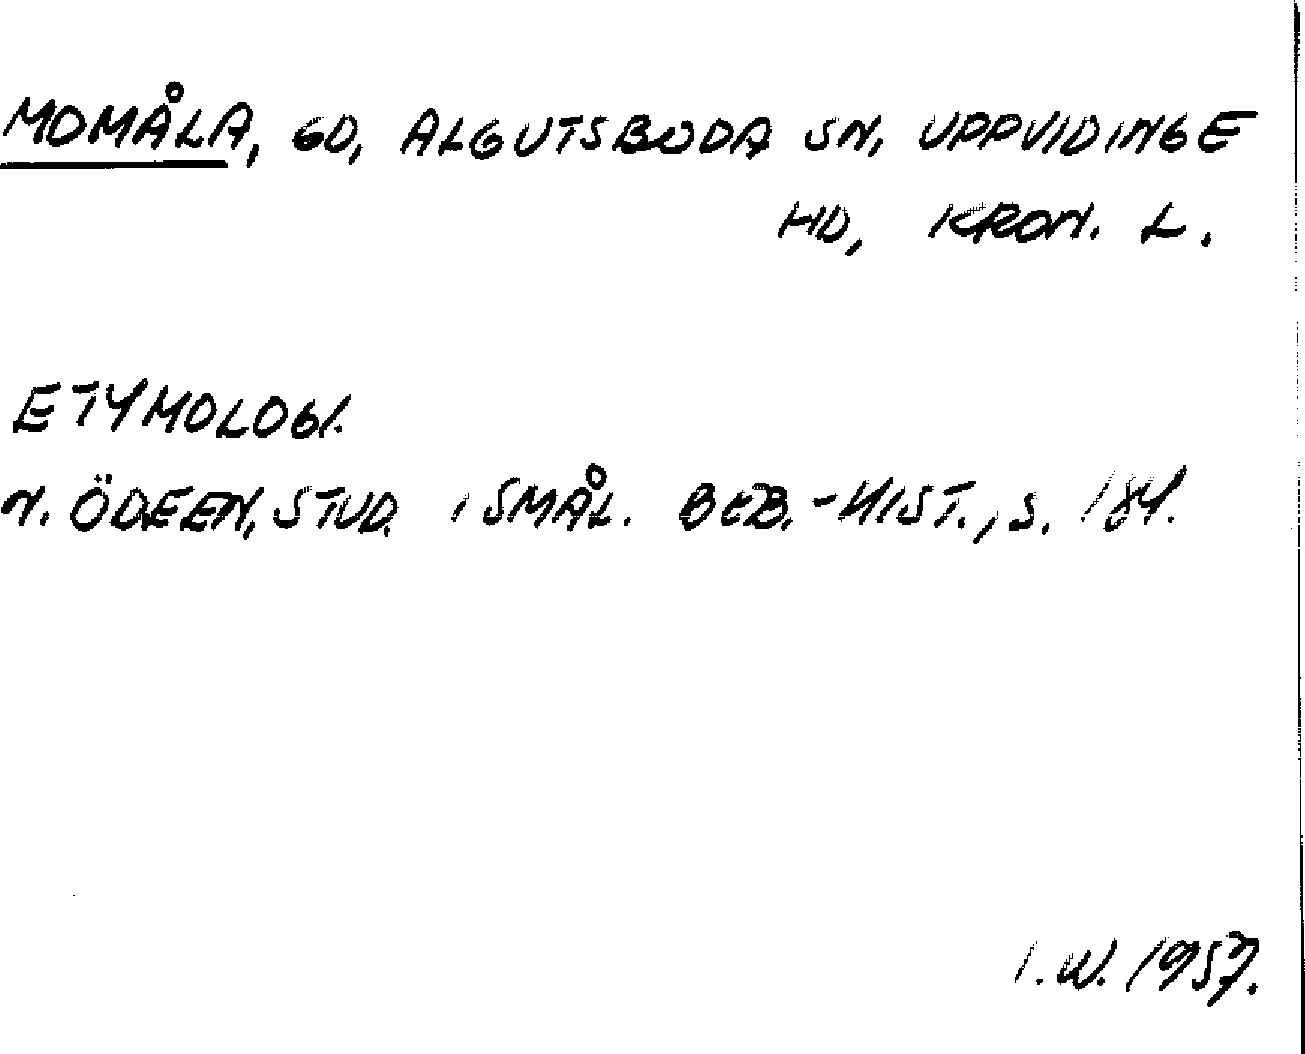 MOMÅLA, GD, ALGUTSBODA SN, UPPVIDINGE
HD, KRON. L.
ETYMOLOGI.
N. ÖDEEN, STUD. I SMÅL. BEB.-HIST., S. 184.
I.W. 1957.